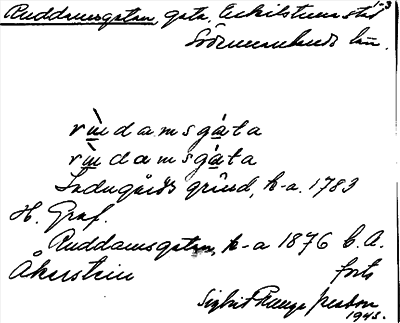 Ruddamsgatan, gata, Eskilstuna stad 1-3
Södermanlands län.
rùdamsgáta
rùdamsgáta
Ladugårds gränd, k-a. 1783
H. Graf.
Ruddamsgatan, k-a 1876 C. A.
Åkerstein forts
Sigbrit Runge Persson
1945.